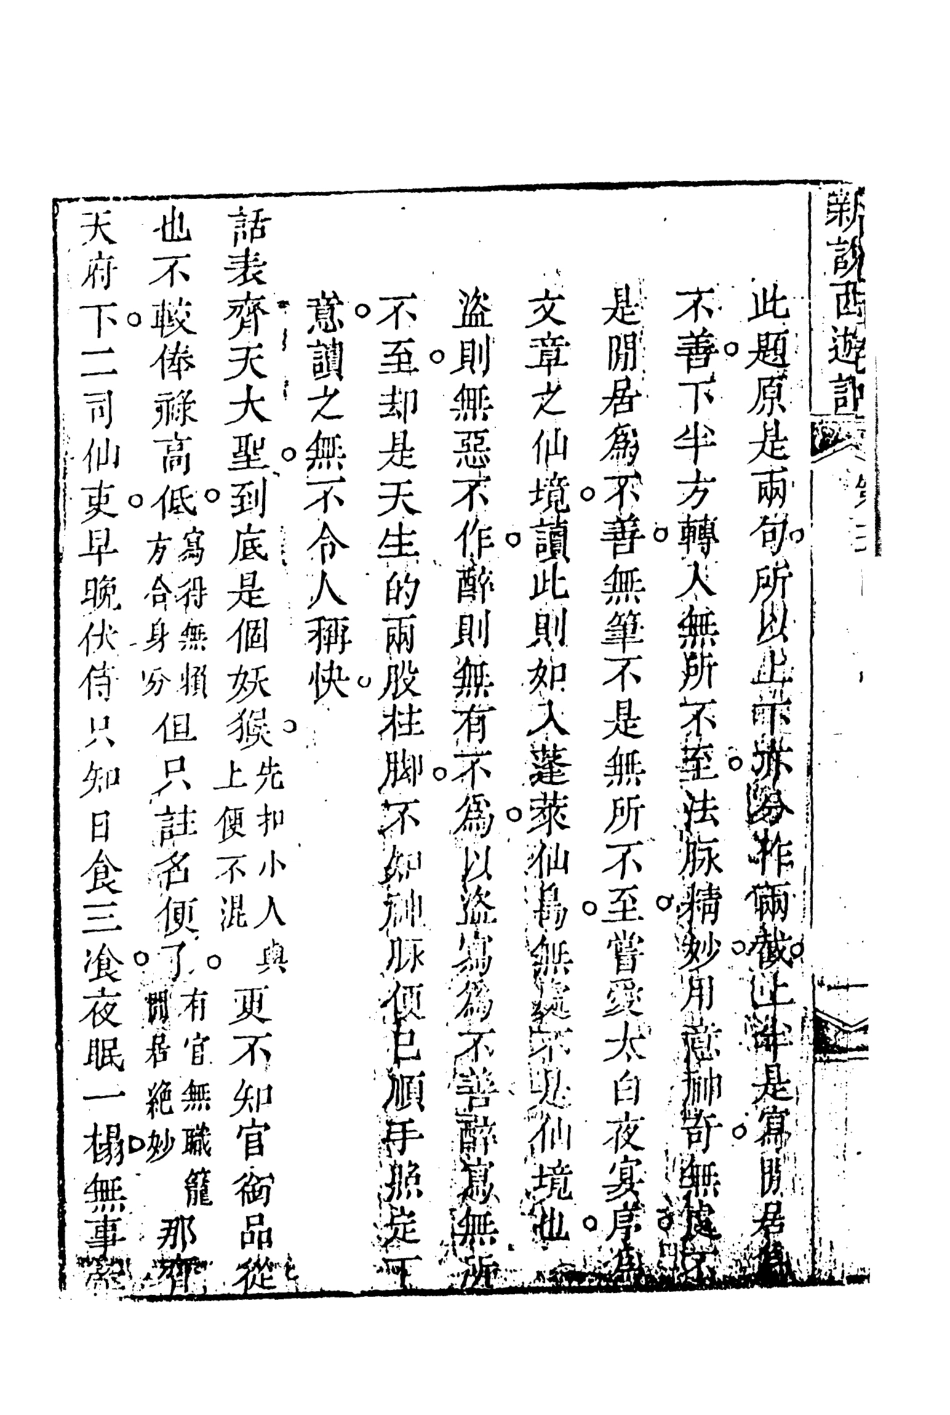 新說西遊記
此題原是兩句所以上下亦分作兩截上半是寫閒居為
不善下半方轉入無所不至法脉精妙用意神奇無處不
是閒居爲不善無筆不是無所不至嘗愛太白夜宴序為
文章之仙境讀此則如入蓬萊仙島無處不是仙境也
盜則無惡不作醉則無有不爲以盜寫爲不善醉寫無所
不至却是天生的兩股柱脚不知神脉便已順手照定下
意讀之無不令人稱快
話表齊天大聖到底是個妖猴先扣小人與上便不混更不知官銜品從
也不較俸祿高低寫得無賴方合身分但只註名便了有官無職籠閒居絶妙那齊
天府下二司仙吏早晚伏侍只知日食三飡夜眠一榻無事